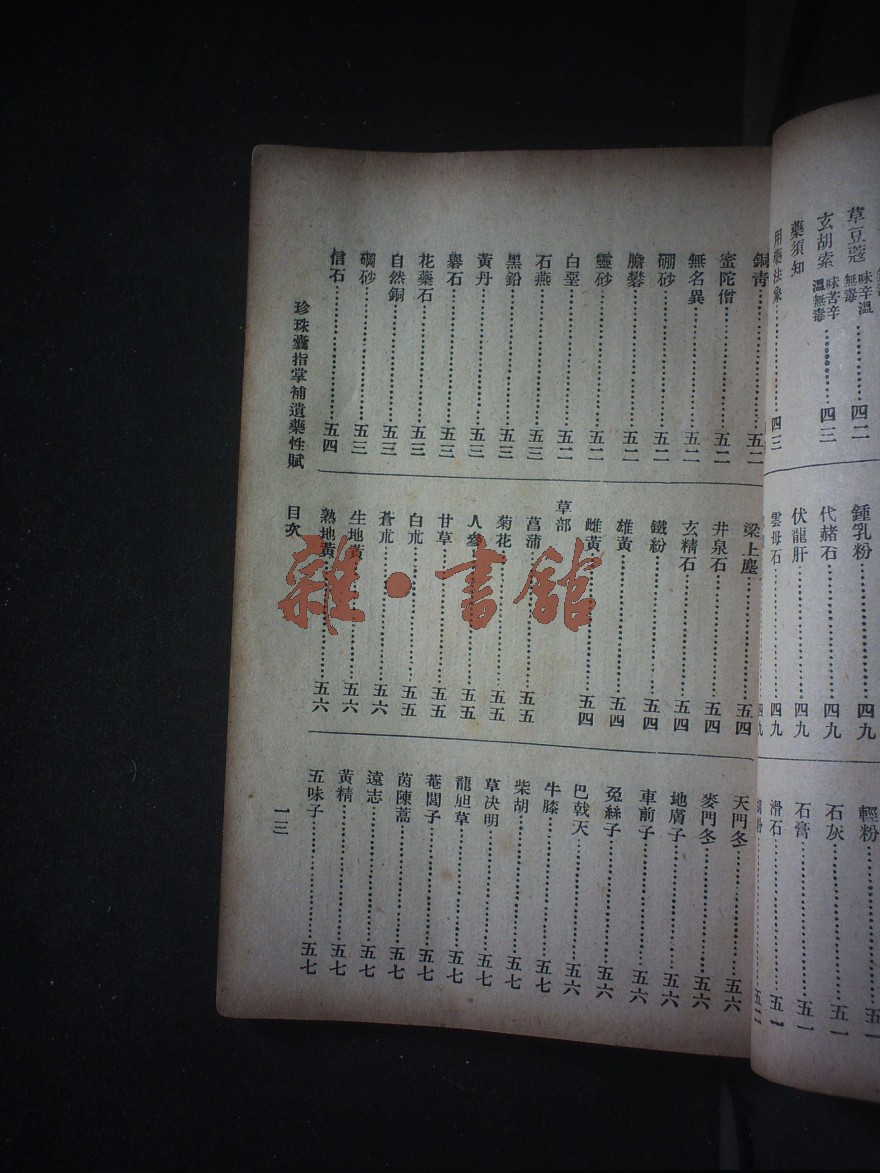 草豆蔻味辛溫無毒……四二
玄胡索味苦辛溫無毒……四三
藥須知
用藥法象……四三
鍾乳粉……四九
代赭石……四九
伏龍肝……四九
雲母石……四九
輕粉……五一
石灰……五一
石膏……五一
滑石……五一
銅青……五二
蜜陀僧……五二
無名異……五二
硼砂……五二
膽礬……五二
靈砂……五二
白堊……五二
石燕……五三
黑鉛……五三
黃丹……五三
礜石……五三
花藥石……五三
自然銅……五三
硇砂……五三
信石……五四
梁上塵……五四
井泉石……五四
玄精石……五四
鐵紛……五四
雄黃……五四
雌黃……五四
草部
菖蒲……五五
菊花……五五
人參……五五
甘草……五五
白朮……五五
蒼朮……五六
生地黃……五六
熟地黃……五六
天門冬……五六
麥門冬……五六
地膚子……五六
車前子……五六
兔絲子……五六
巴戟天……五六
牛膝……五七
柴胡……五七
草决明……五七
龍胆草……五七
菴閭子……五七
茵陳蒿……五七
遠志……五七
黃精……五七
五味子……五七
珍珠囊指掌補遺藥性賦 目次 一三
雜·書館